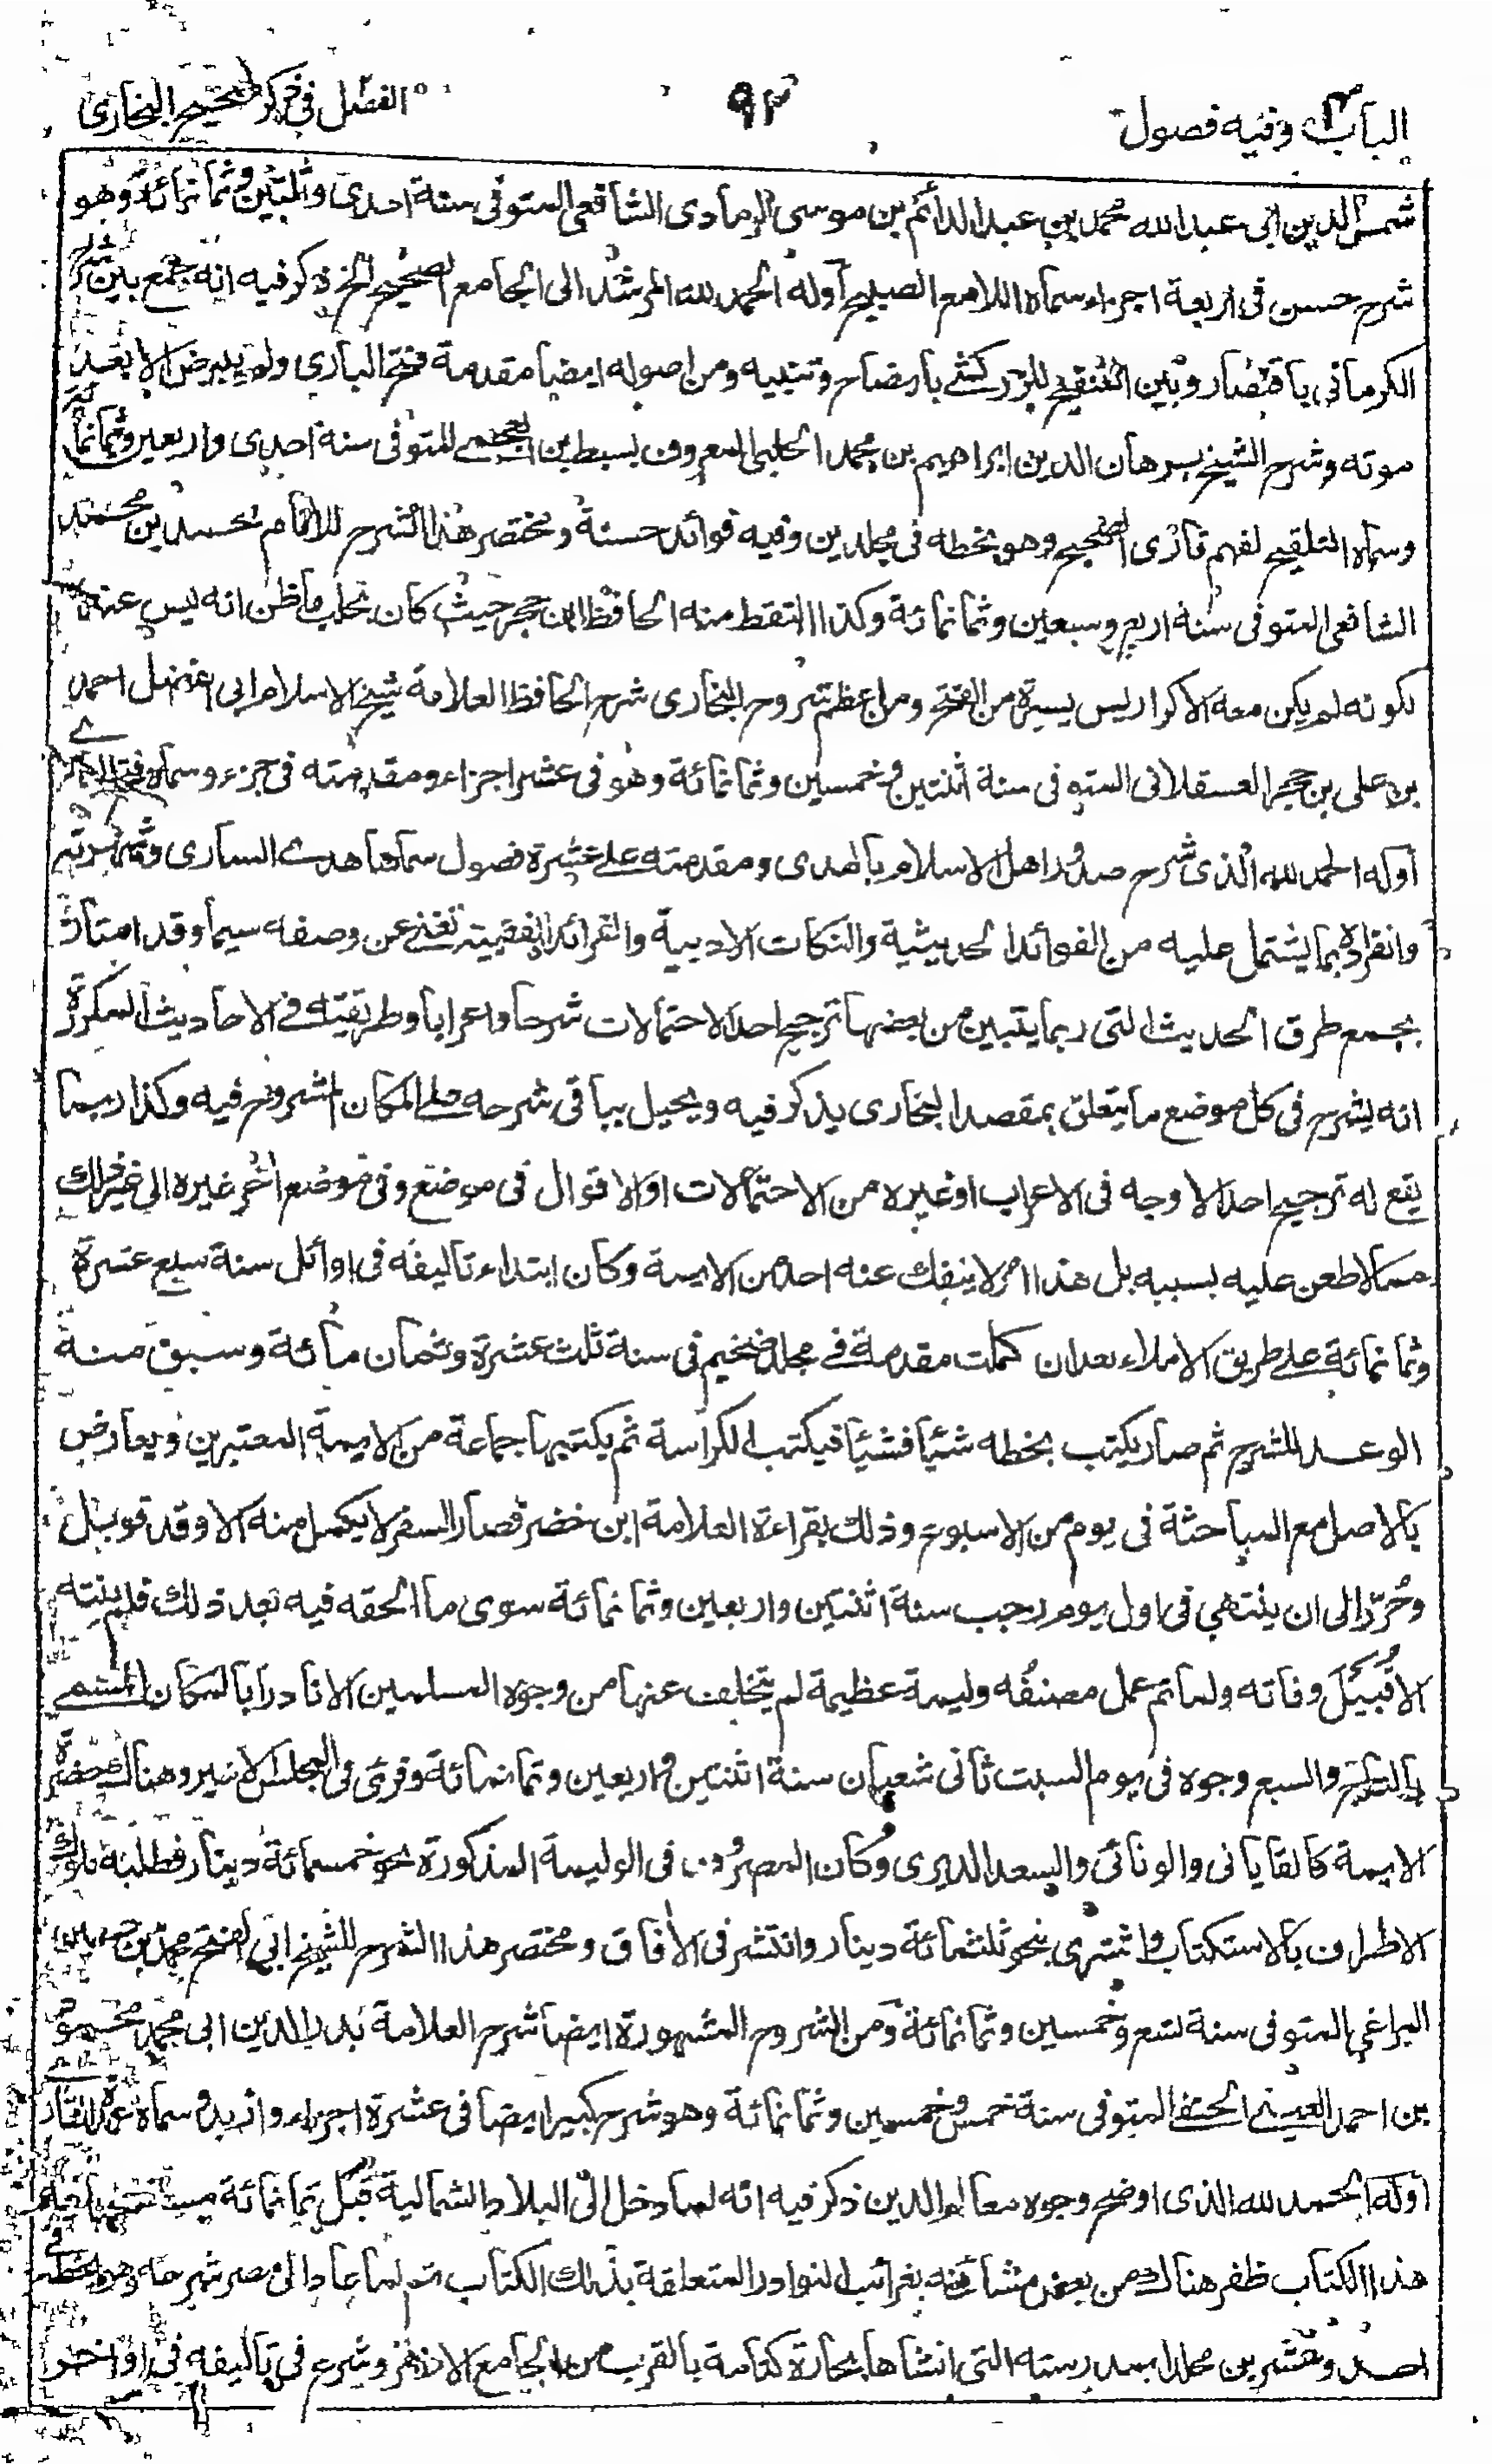 الباب ٢ وفيه فصول
٩٣
الفصل في ذكر صحيح البخاري
شمس الدين ابي عبد الله محمد بن عبد الدائم بن موسى البرمادى الشافعي المتوفى سنة احدى وثلثين وثمانمائة وهو
شرح حسن في اربعة اجزاء سماه اللامع الصبيح اوله الحمد لله المرشد الى الجامع الصحيح الخ ذكر فيه انه جمع بين شرح
الكرماني باقتصار وبين التنقيح للزركشى بايضاح وتنبيه ومن اصوله ايضا مقدمة فتح البارى ولم يبيض الا بعد
موته وشرح الشيخ برهان الدين ابراهيم بن محمد الحلبي المعروف بسبط بن العجمي المتوفى سنة احدى واربعين وثمانمائة
وسماه التلقيح لفهم قارى الصحيح وهو بخطه في مجلدين وفيه فوائد حسنة ومختصر هذا الشرح للامام محمد بن محمد
الشافعي المتوفى سنة اربع وسبعين وثمانمائة وكذا التقط منه الحافظ ابن حجر حيث كان بحلب ما ظن انه ليس عنده
لكونه لم يكن معه الا كراريس يسيرة من الفتح ومن اعظم شروح البخارى شرح الحافظ العلامة شيخ الاسلام ابي الفضل احمد
بن علي بن حجر العسقلاني المتوفى سنة اثنتين وخمسين وثمانمائة وهو في عشر اجزاء ومقدمته في جزء وسماه فتح البارى
اوله الحمد لله الذى شرح صدور اهل الاسلام بالهدى ومقدمته على عشرة فصول سماها هدى السارى وشهرته
وانفراده بما يشتمل عليه من الفوائد الحديثية والنكات الادبية والفرائد الفقهية تغنى عن وصفه سيما وقد امتاز
بجمع طرق الحديث التي ربما يتبين من بعضها ترجيح احد الاحتمالات شرحا واعرابا وطريقته في الاحاديث المكررة
انه يشرح في كل موضع ما يتعلق بمقصد البخارى يذكر فيه ويحيل بباقي شرحه على المكان المشروح فيه وكذا ربما
يقع له ترجيح احد الاوجه في الاعراب او غيره من الاحتمالات او الاقوال في موضع وفي موضع اخر غيره الى غير ذلك
مما لا طعن عليه بسببه بل هذا امر لا ينفك عنه احد من الايمة وكان ابتداء تاليفه في اوائل سنة سبع عشرة
وثمانمائة على طريق الاملاء بعد ان كملت مقدمة في مجلد ضخيم في سنة ثلث عشرة وثمان مائة وسبق منه
الوعد للشرح ثم صار يكتب بخطه شيئا فشيئا فيكتب الكراسة ثم يكتبها جماعة من الايمة المعتبرين ويعارض
بالاصل مع المباحثة في يوم من الاسبوع وذلك بقراءة العلامة ابن خضر فصار السفر لا يكمل منه الا وقد قوبل
وحرر الى ان ينتهي في اول يوم رجب سنة اثنتين واربعين وثمانمائة سوى ما الحقه فيه بعد ذلك فلم ينته
الا قبيل وفاته ولما تم عمل مصنفه وليمة عظيمة لم يتخلف عنها من وجوه المسلمين الا نادرا بالمكان المسمى
بالتاج والسبع وجوه في يوم السبت ثاني شعبان سنة اثنتين واربعين وثمانمائة وقرئ في المجلس الاخير وهناك حضرة
الايمة كالقاياني والونائي والسعد الديرى وكان المصروف في الوليمة المذكورة نحو خمسمائة دينار فطلبه ملوك
الاطراف بالاستكتاب واشترى بنحو ثلثمائة دينار وانتشر في الافاق ومختصر هذا الشرح للشيخ ابي الفتح محمد بن حسين
المراغي المتوفى سنة تسع وخمسين وثمانمائة ومن الشروح المشهورة ايضا شرح العلامة بدر الدين ابي محمد محمود
بن احمد العيني الحنفي المتوفى سنة خمس وخمسين وثمانمائة وهو شرح كبير ايضا في عشرة اجزاء وازيد وسماه عمدة القارى
اوله الحمد لله الذى اوضح وجوه معالم الدين ذكر فيه انه لما دخل الى البلاد الشمالية قبل ثمانمائة مستصحبا فيه
هذا الكتاب ظفر هناك من بعض مشائخه بغرائب النوادر المتعلقة بذلك الكتاب ثم لما عاد الى مصر شرحه وهو بخطه في
احد وعشرين مجلدا بمدرسته التي انشاها بحارة كتامة بالقرب من الجامع الازهر وشرع في تاليفه في اواخر